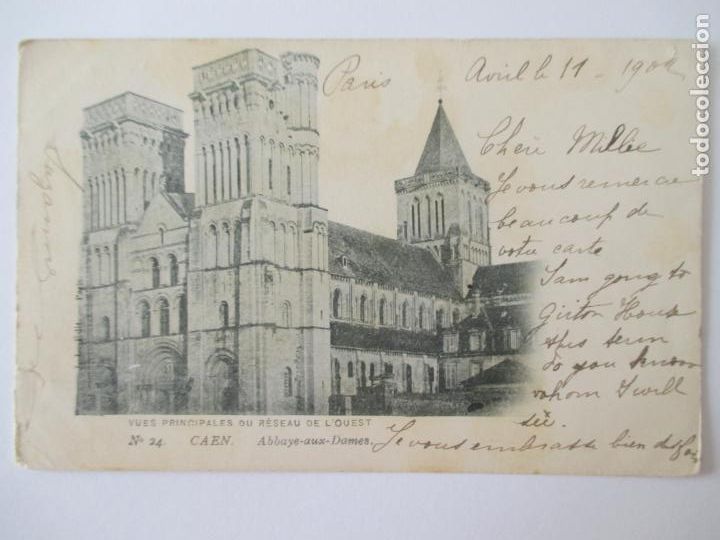 Paris
Avril le 11 - 1902
Chère Mellie
Je vous remercie
beaucoup de
votre carte
I am going to
Girton House
this term
do you know
whom I will
see.
Je vous embrasse bien des fois
VUES PRINCIPALES DU RÉSEAU DE L'OUEST
No 24. CAEN. Abbaye-aux-Dames.
todocoleccion